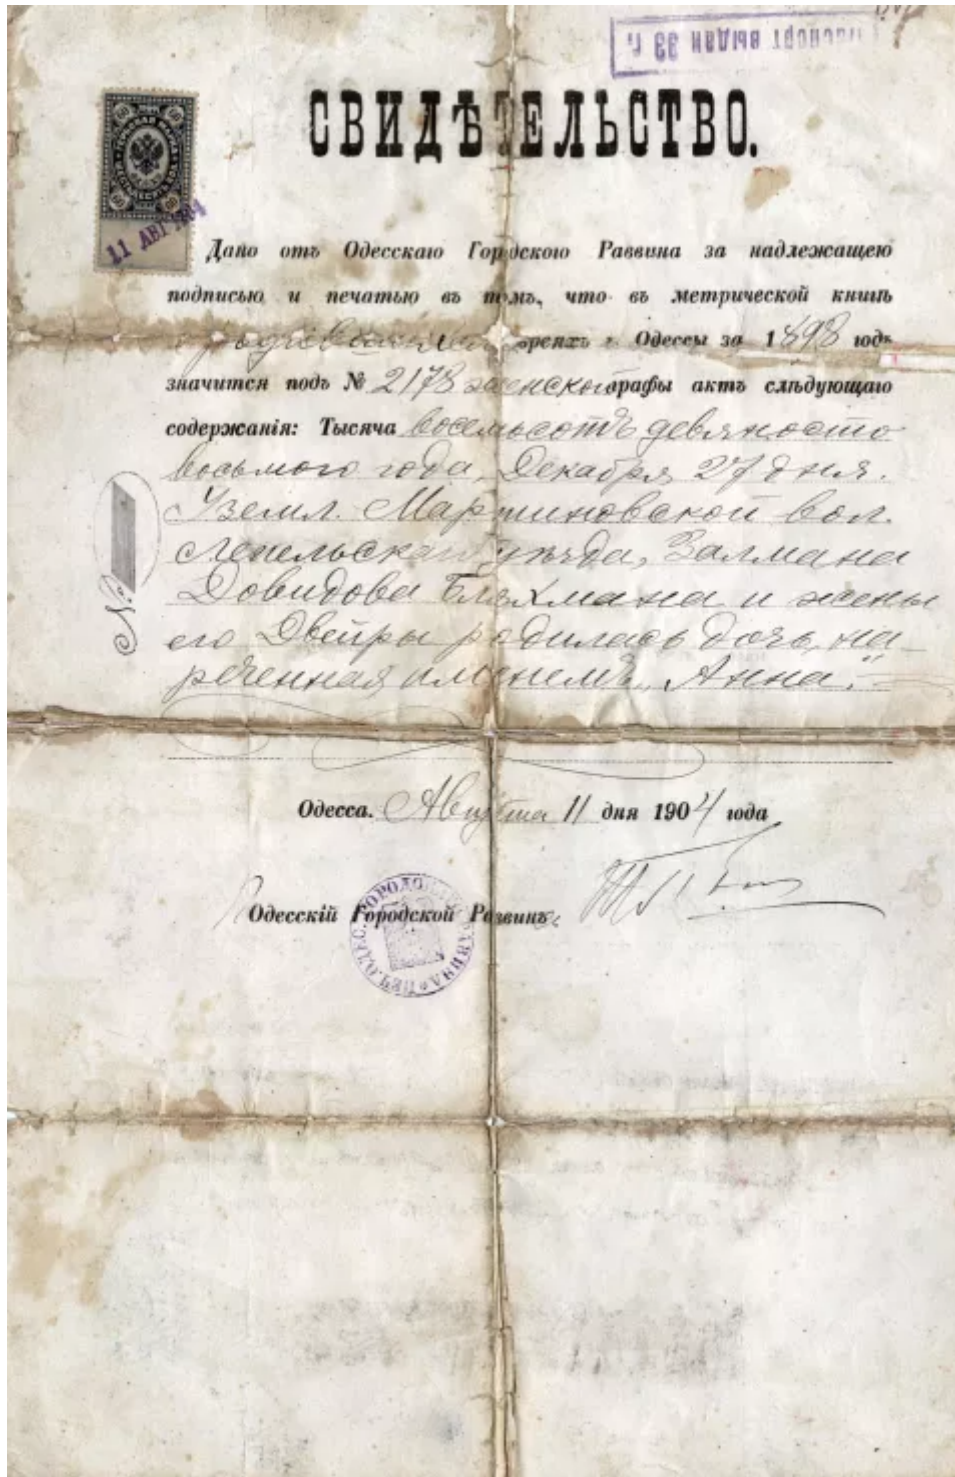 Паспорт выдан 33 г.
СВИДѢТЕЛЬСТВО.
60 60
ГЕРБОВАЯ МАРКА
60 60
11 АВГ 1904
Дано отъ Одесскаго Городского Раввина за надлежащею
подписью и печатью въ томъ, что въ метрической книгѣ
о родившихся евреяхъ г. Одессы за 1898 годъ
значится подъ № 2178 женской графы актъ слѣдующаго
содержанія: Тысяча восемьсотъ девяносто
восьмого года, Декабря 27 дня.
У земл. Мартиновской вол.
Лепельскаго уѣзда, Залмана
Довидова Бляхмана и жены
его Двейры родилась дочь, на-
реченная именемъ „Анна."
№
Одесса. Августа 11 дня 1904 года
Одесскій Городской Раввинъ
ПЕЧ. ОДЕС. ГОРОДОВ. РАВВИНА